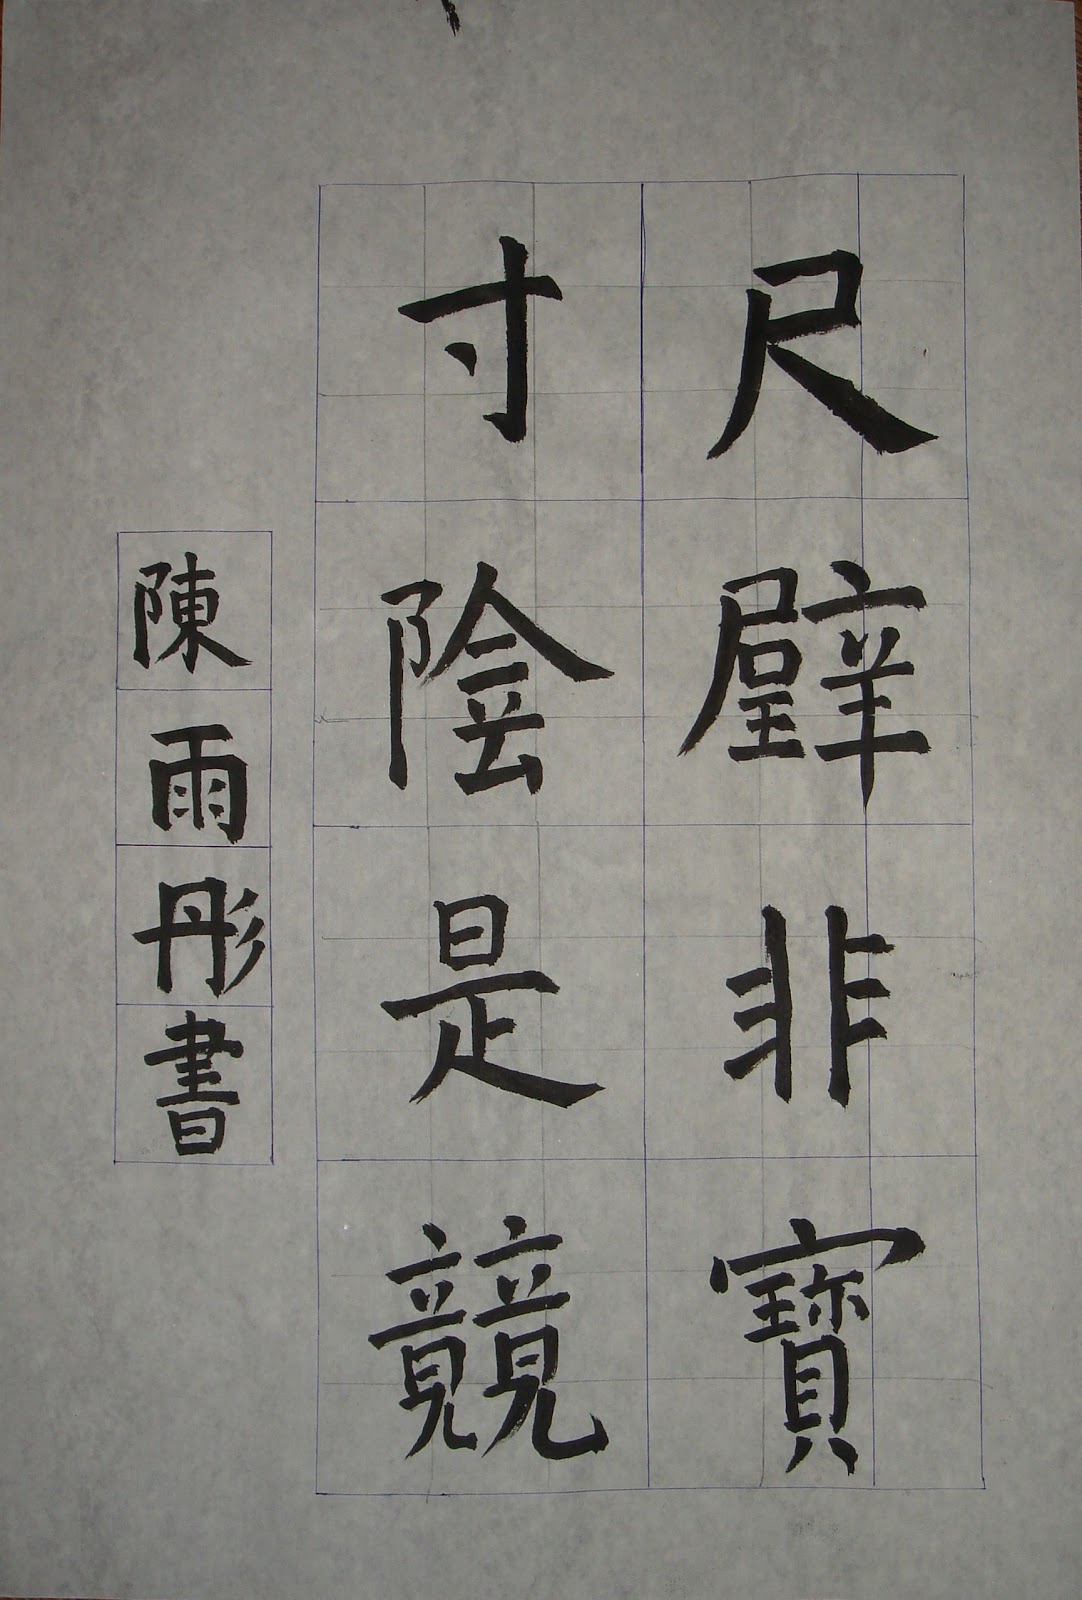 尺璧非寶
寸陰是競
陳雨彤書